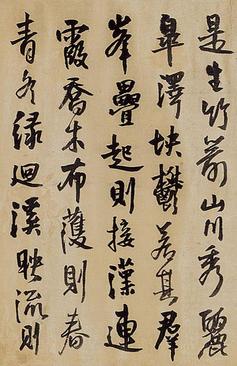 是生竹箭山川秀麗
皐澤坱鬱若其群
峯疊起則接漢連
霞喬木布濩則春
青冬綠迴溪映流則